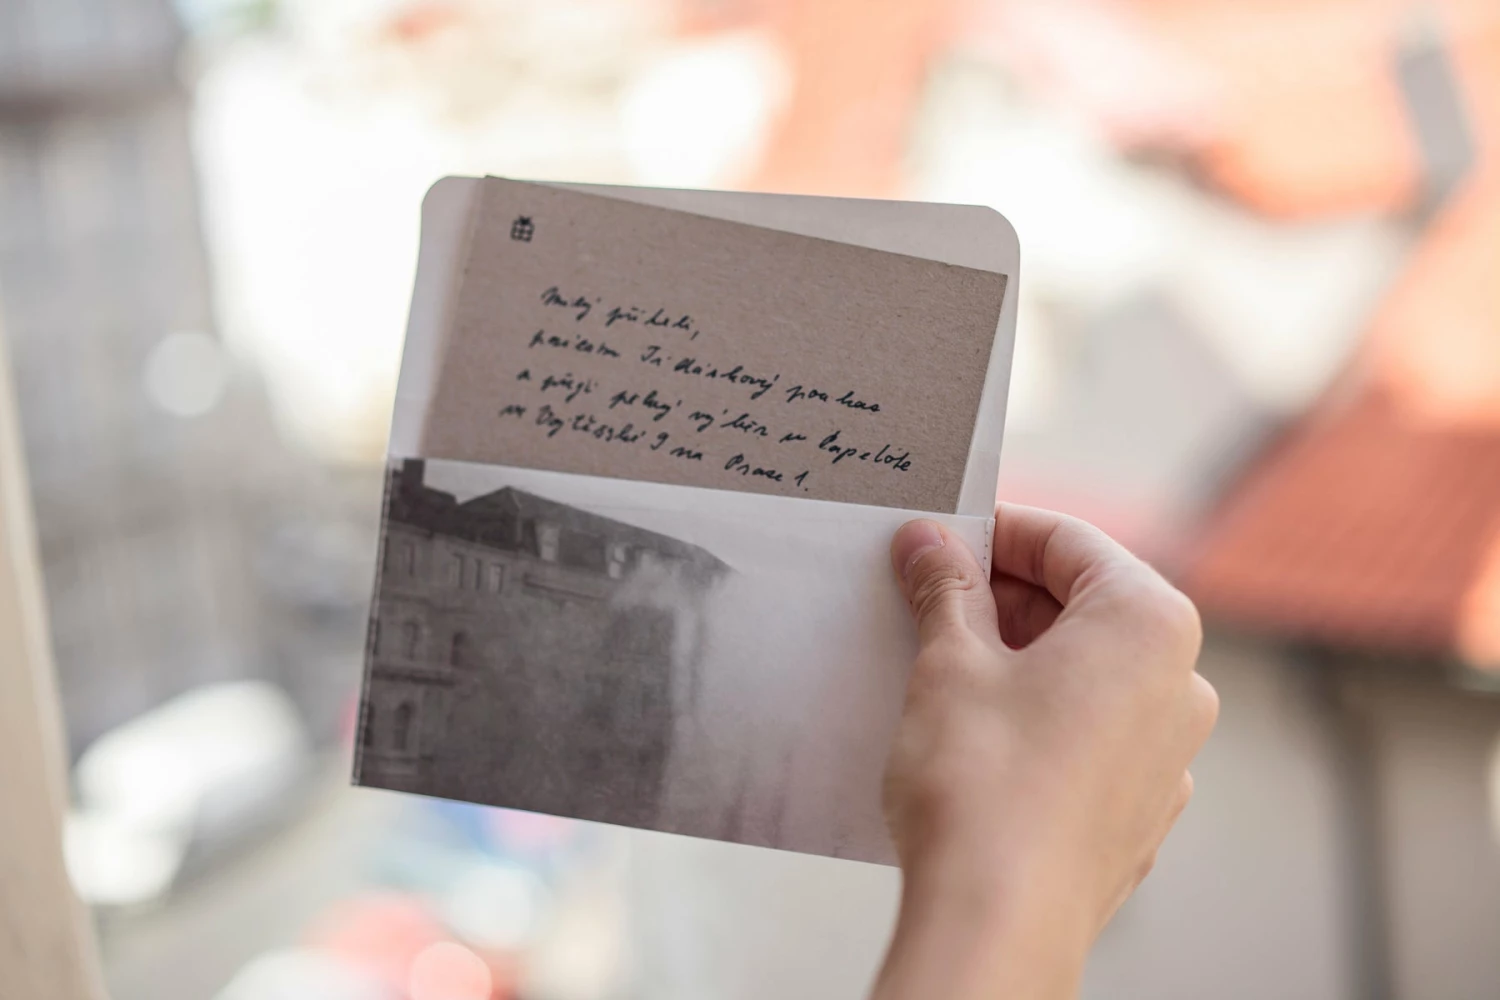 Milý příteli,
posílám Ti dárkový poukaz
a přeji pěkný výběr v Papelote
ve Vojtěšské 9 na Praze 1.